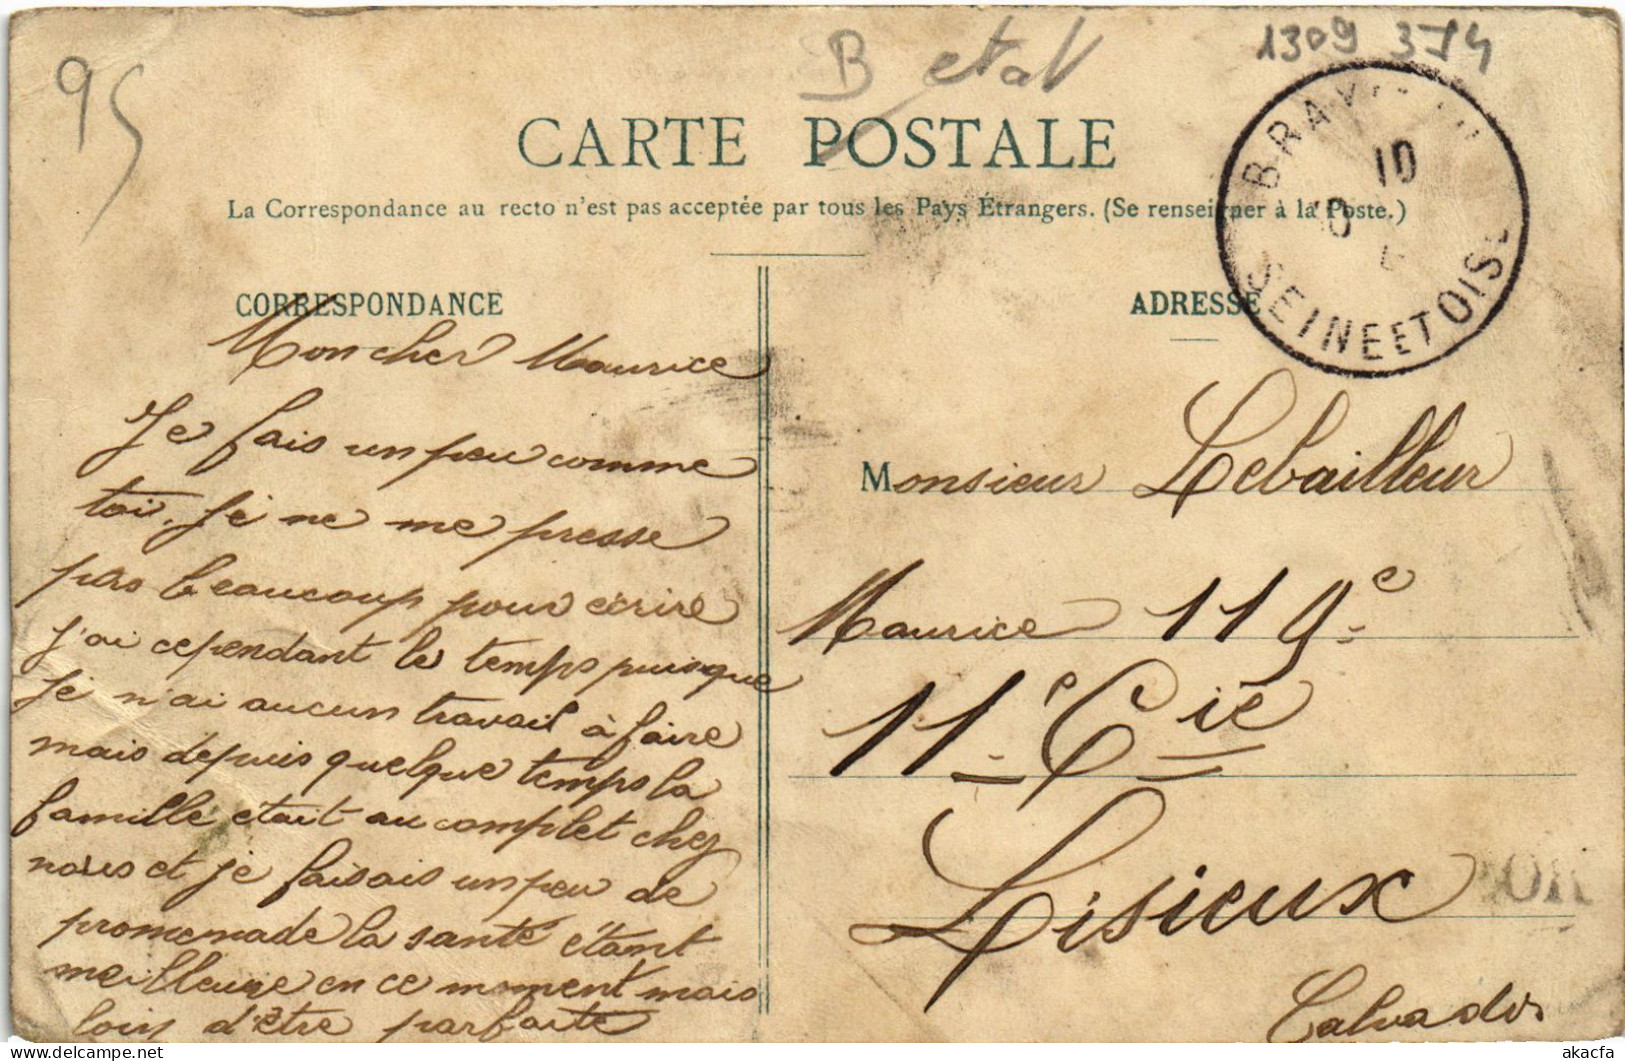 95
B etat
1309 354
CARTE POSTALE
La Correspondance au recto n'est pas acceptée par tous les Pays Étrangers. (Se renseigner à la Poste.)
10
SEINE ET OISE
CORRESPONDANCE
Mon cher Maurice
Je fais un peu comme
toi. Je ne me presse
pas beaucoup pour écrire
j'ai cependant le temps puisque
je n'ai aucun travail à faire
mais depuis quelque temps la
famille était au complet chez
nous et je faisais un peu de
promenade la santé étant
meilleure en ce moment mais
loin d'être parfaite
ADRESSE
Monsieur Lebailleur
Maurice 119e
11e Cie
Lisieux
Calvados
akacfa